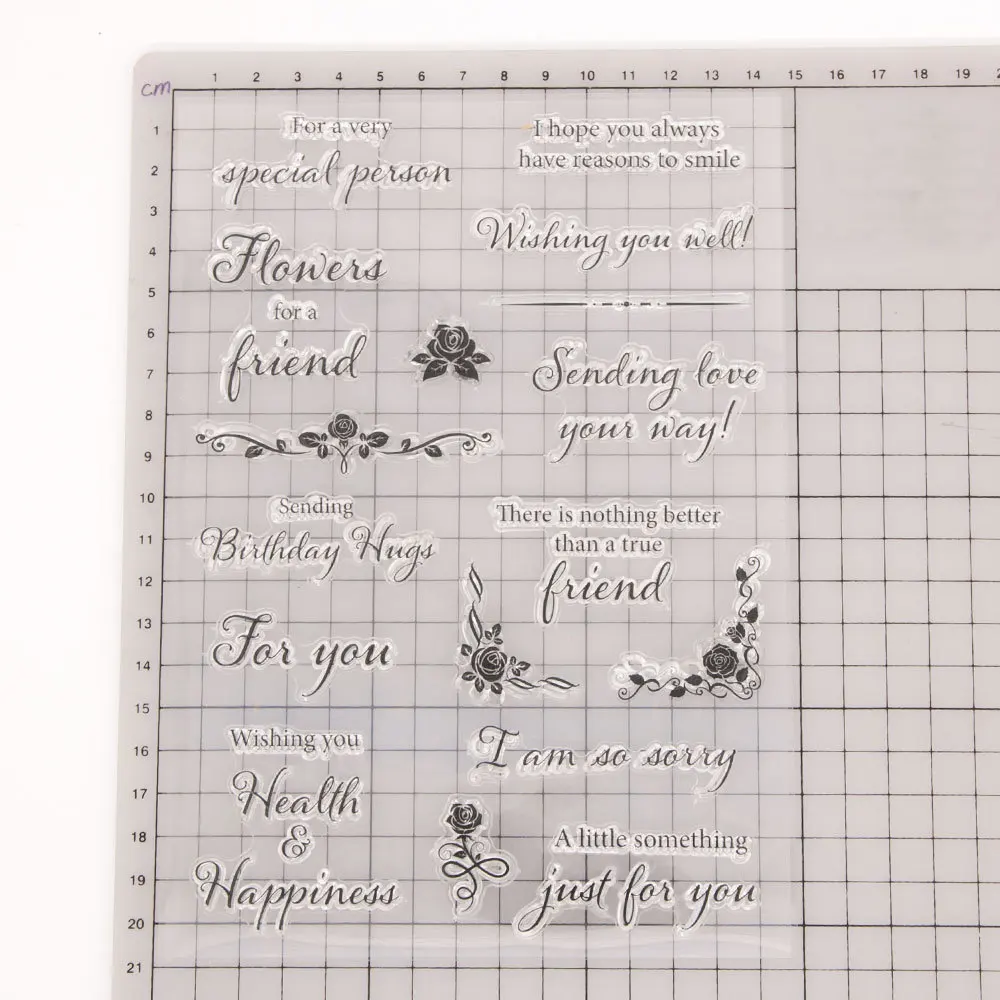 cm
1 2 3 4 5 6 7 8 9 10 11 12 13 14 15 16 17 18 19
1
2
3
4
5
6
7
8
9
10
11
12
13
14
15
16
17
18
19
20
21
For a very
special person
Flowers
for a
friend
Sending
Birthday Hugs
For you
Wishing you
Health
&
Happiness
I hope you always
have reasons to smile
Wishing you well!
Sending love
your way!
There is nothing better
than a true
friend
I am so sorry
A little something
just for you